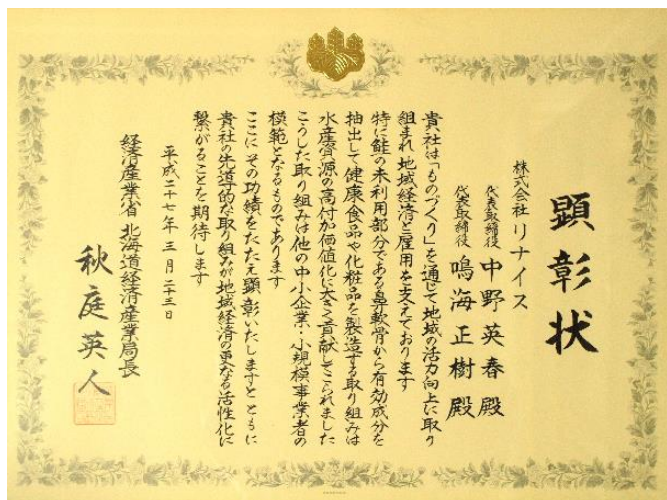 顕彰状
株式会社 リナイス
代表取締役 中野英春殿
代表取締役 鳴海正樹殿
貴社は「ものづくり」を通じて地域の活力向上に取り
組まれ地域経済と雇用を支えております
特に鮭の未利用部分である鼻軟骨から有効成分を
抽出して健康食品や化粧品を製造する取り組みは
水産資源の高付加価値化に大きく貢献してこられました
こうした取り組みは他の中小企業・小規模事業者の
模範となるものであります
ここにその功績をたたえ顕彰いたしますとともに
貴社の先導的な取り組みが地域経済の更なる活性化に
繋がることを期待します
平成二十七年三月二十三日
経済産業省 北海道経済産業局長
秋庭英人